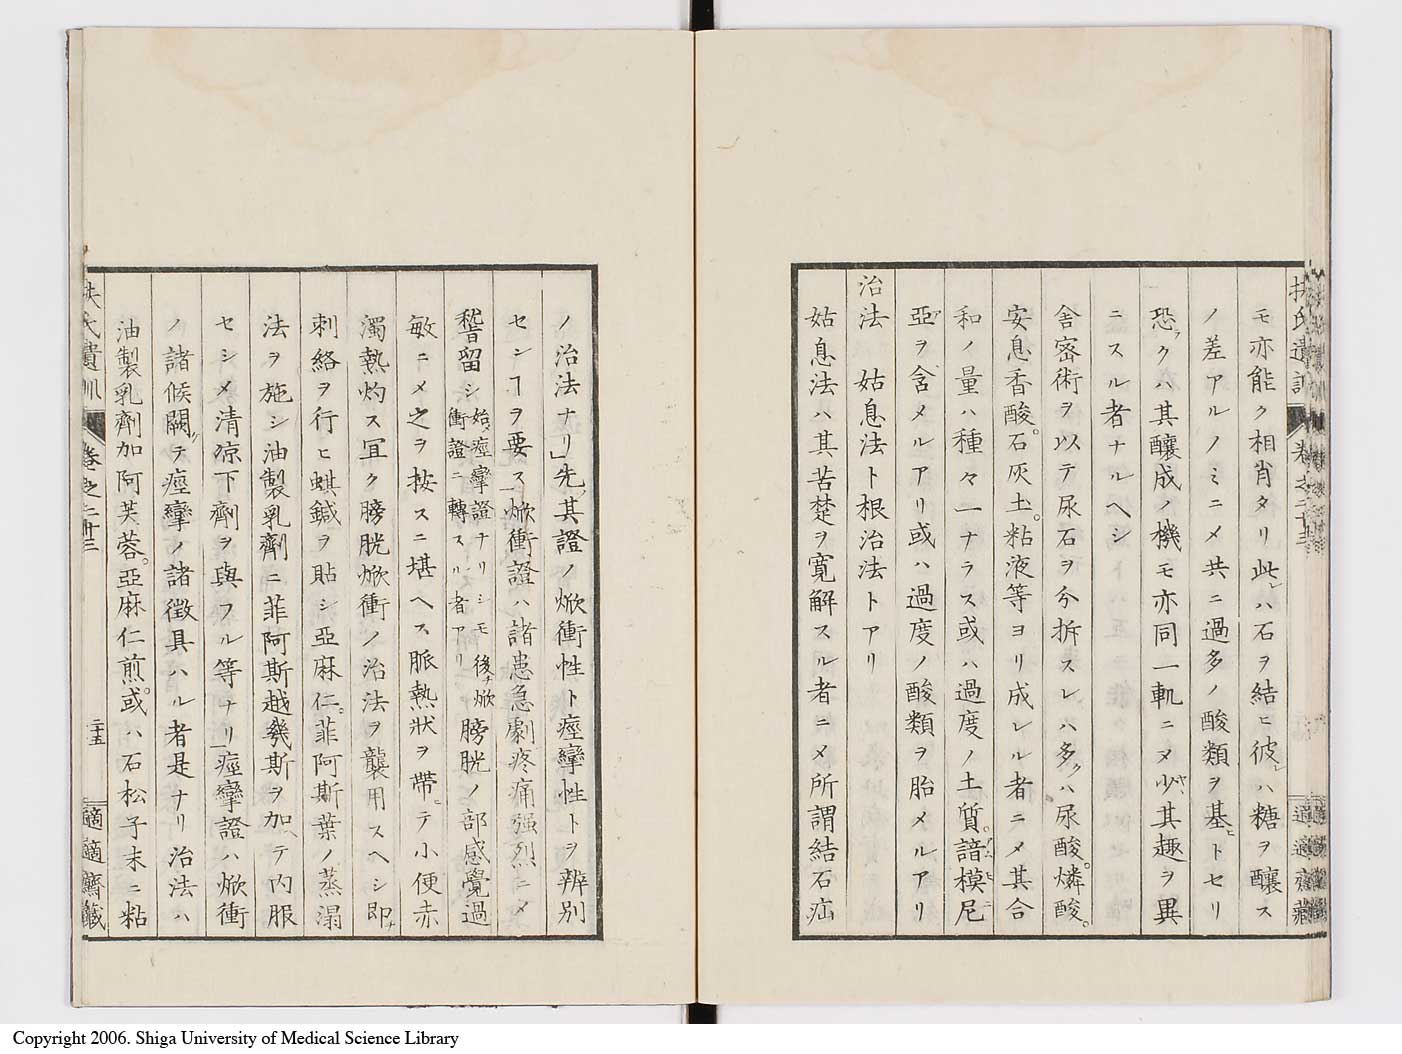 モ亦能ク相肖タリ此レハ石ヲ結ヒ彼レハ糖ヲ醸ス
ノ差アルノミニメ共ニ過多ノ酸類ヲ基ヒトセリ
恐クハ其醸成ノ機モ亦同一軌ニメ少サ其趣ヲ異
ニスル者ナルヘシ
舎密術ヲ以テ尿石ヲ分拆スレハ多クハ尿酸。燐酸。
安息香酸。石灰土。粘液等ヨリ成レル者ニメ其合
和ノ量ハ種々一ナラス或ハ過度ノ土質。諳模尼
亜ヲ含メルアリ或ハ過度ノ酸類ヲ胎メルアリ
治法 姑息法ト根治法トアリ
姑息法ハ其苦楚ヲ寛解スル者ニメ所謂結石疝
ノ治法ナリ」先ツ其證ノ焮衝性ト痙攣性トヲ辨別
センヿヲ要ス」焮衝證ハ諸患急劇疼痛強烈ニメ
稽留シ始メ痙攣證ナリシモ後チ焮衝證ニ轉スル者アリ膀胱ノ部感覺過
敏ニメ之ヲ按スニ堪ヘス脈熱状ヲ帶ヒテ小便赤
濁熱灼ス冝ク膀胱焮衝ノ治法ヲ襲用スヘシ即チ
刺絡ヲ行ヒ蜞鍼ヲ貼シ亞麻仁。菲阿斯葉ノ蒸溻
法ヲ施シ油製乳劑ニ菲阿斯越幾斯ヲ加ヘテ内服
セシメ清凉下劑ヲ與フル等ナリ」痙攣證ハ焮衝
ノ諸候闕ケテ痙攣ノ諸徴具ハル者是ナリ治法ハ
油製乳劑加阿芙蓉。亞麻仁煎。或ハ石松子末ニ粘
扶氏遺訓 卷之二十三 二十五 適適齋藏